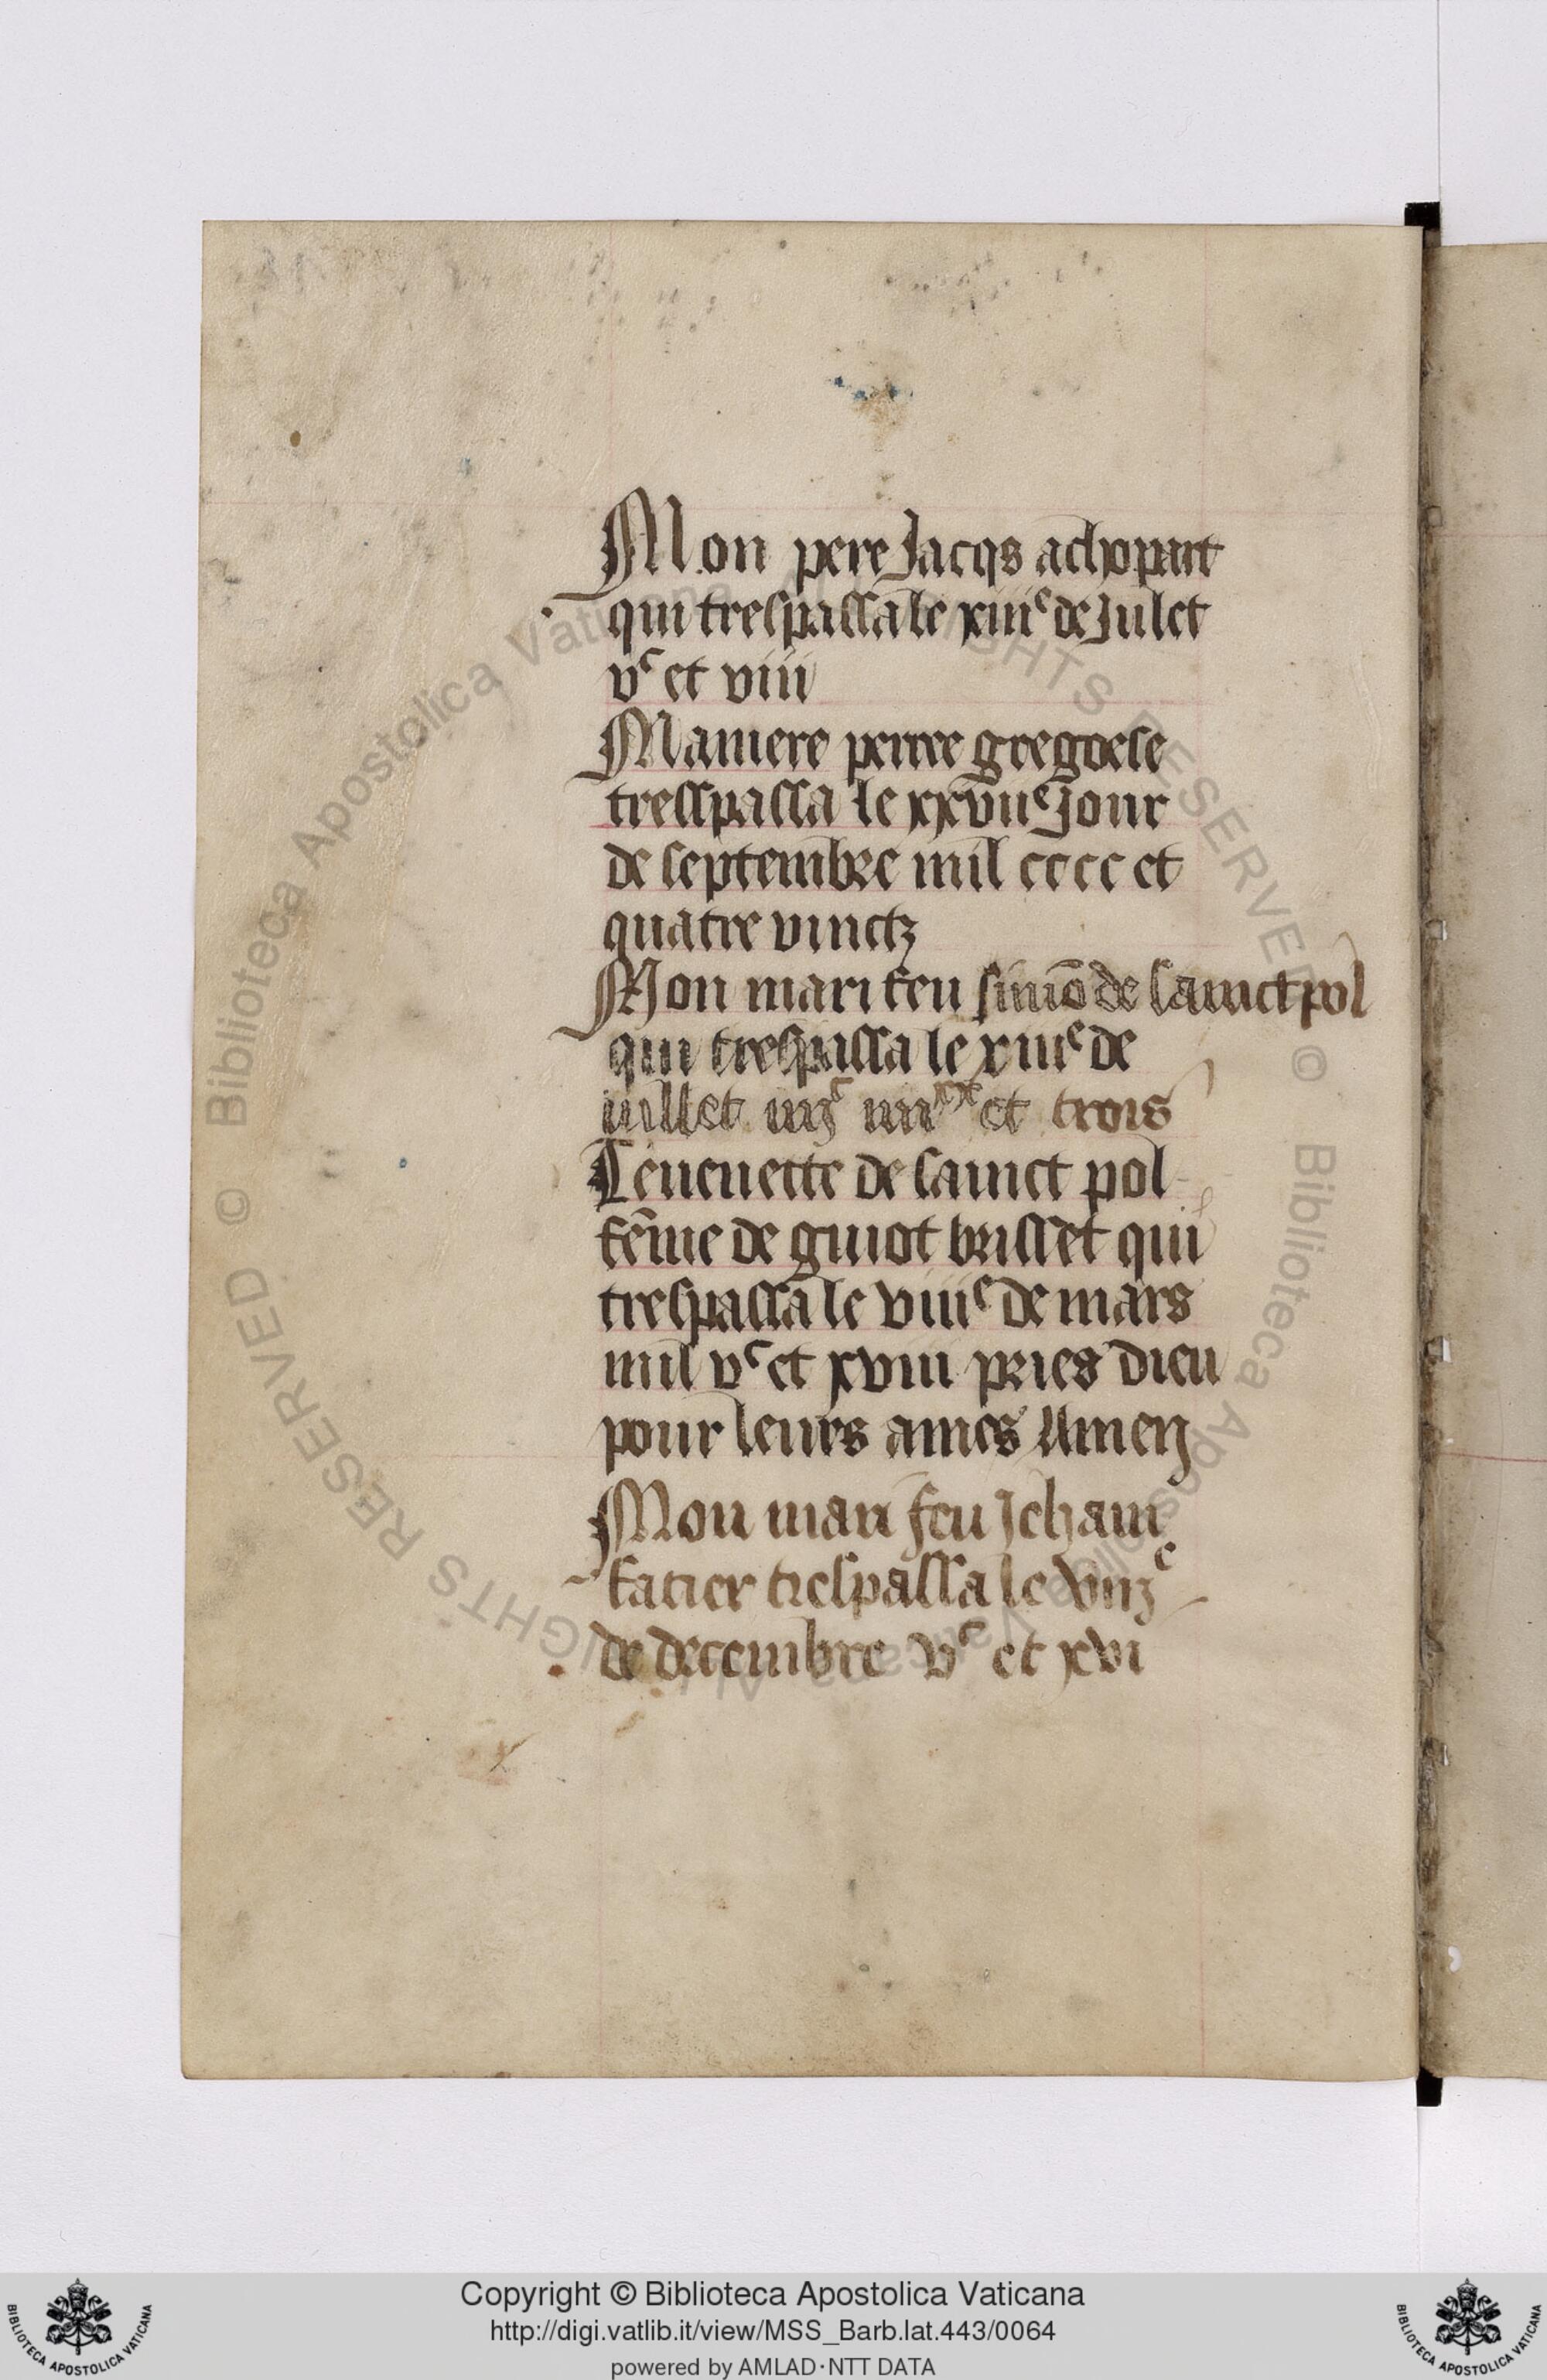 Mon pere Jacqs achopart
qui trespassa le xiiiᵉ de Julet
vᶜ et viii
Mamere perree gregoese
tresspassa le xxviiᵉ Jour
de septembre mil cccc et
quatre vinctz
Mon mari feu simō de sainct pol
qui trespassa le xiiiᵉ de
iullet iiijᶜ iiiiˣˣ et trois
Teuenette de sainct pol
fēme de guiot brisset qui
trespassa le viiiᵉ de mars
mil vᶜ et xviii pries dieu
pour leurs ames Amen
Mon mari feu Jeham
fatier trespassa le viijᵉ
de decembre vᶜ et xvi
© Biblioteca Apostolica Vaticana ALL RIGHTS RESERVED © Biblioteca Apostolica Vaticana ALL RIGHTS RESERVED
Copyright © Biblioteca Apostolica Vaticana
http://digi.vatlib.it/view/MSS_Barb.lat.443/0064
powered by AMLAD·NTT DATA
BIBLIOTECA APOSTOLICA VATICANA
BIBLIOTECA APOSTOLICA VATICANA